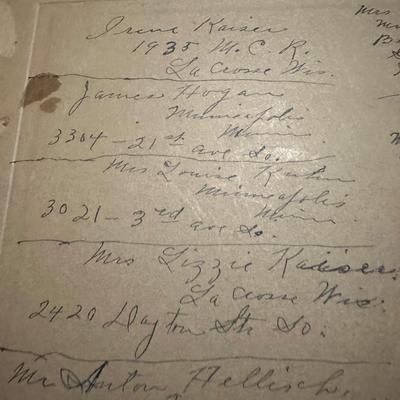 Irene Kaiser
1935 M. C. R.
La Crosse Wis.
James Hogan
Minneapolis
Minn
3304 - 21st ave So.
Mrs Louise
Minneapolis
Minn.
3021 - 3rd ave So.
Mrs Lizzie Kaiser.
La Crosse Wis.
2420 Dayton Str So.
Mr Anton Hellisch.
Mrs